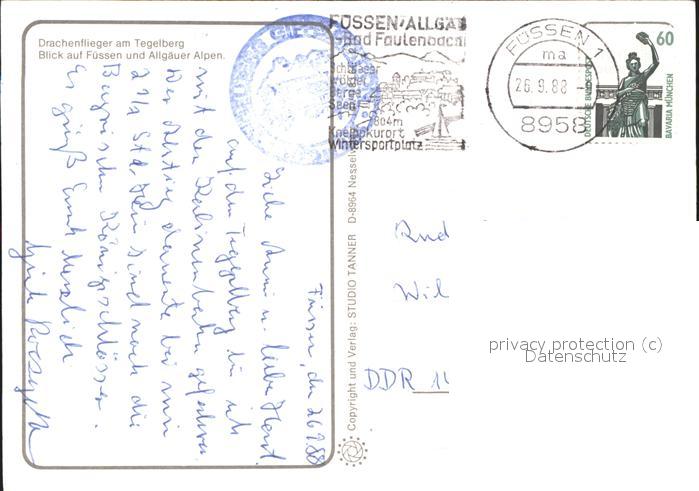 Drachenflieger am Tegelberg
Blick auf Füssen und Allgäuer Alpen.
FÜSSEN/ALLGÄU
Bad Faulenbach
Wälder
Berge
Seen
804m
Kneippkurort
Wintersportplatz
FÜSSEN 1
ma
26.9.88
8958
60
DEUTSCHE BUNDESPOST
BAVARIA MÜNCHEN
Füssen, den 26.9.88
Liebe Anni u. lieber Horst.
auf den Tegelberg bin ich
mit der Kabinenbahn gefahren
der Abstieg dauerte bei mir
2 1/2 Std. Hier sind noch die
Bayrischen Königsschlösser.
Es grüßt Euch herzlich
Copyright und Verlag: STUDIO TANNER D-8964 Nesselw
Rud
Wil
DDR 14
privacy protection (c)
Datenschutz